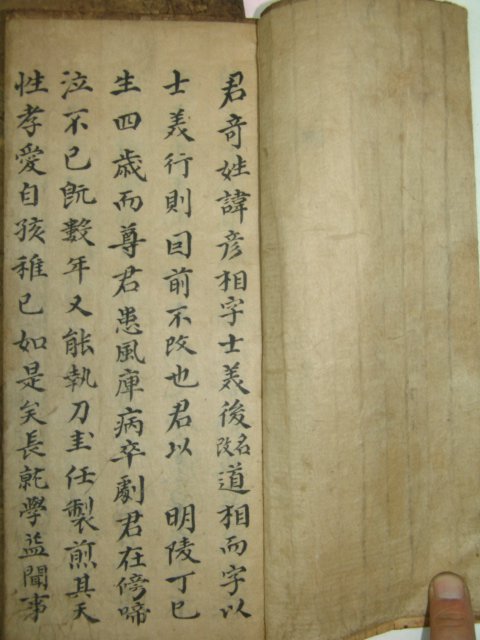 君奇姓諱彦相字士義後改名道相而字以
士義行則因前不改也君以 明陵丁巳
生四歳而尊君患風庫病卒劇君在傍啼
泣不已旣數年又能執刀圭任製煎其天
性孝愛自孩稚已如是矣長就學益聞事